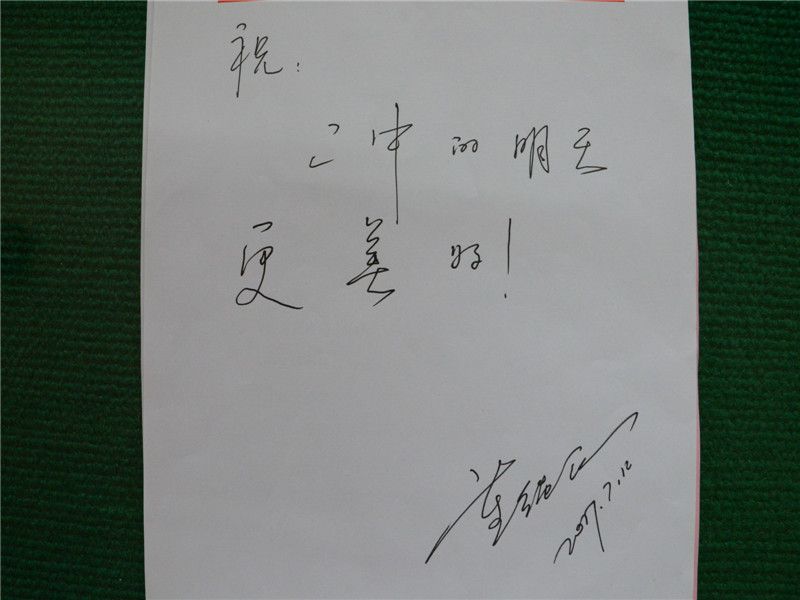 祝：
二中的明天
更美好！
2007.7.12